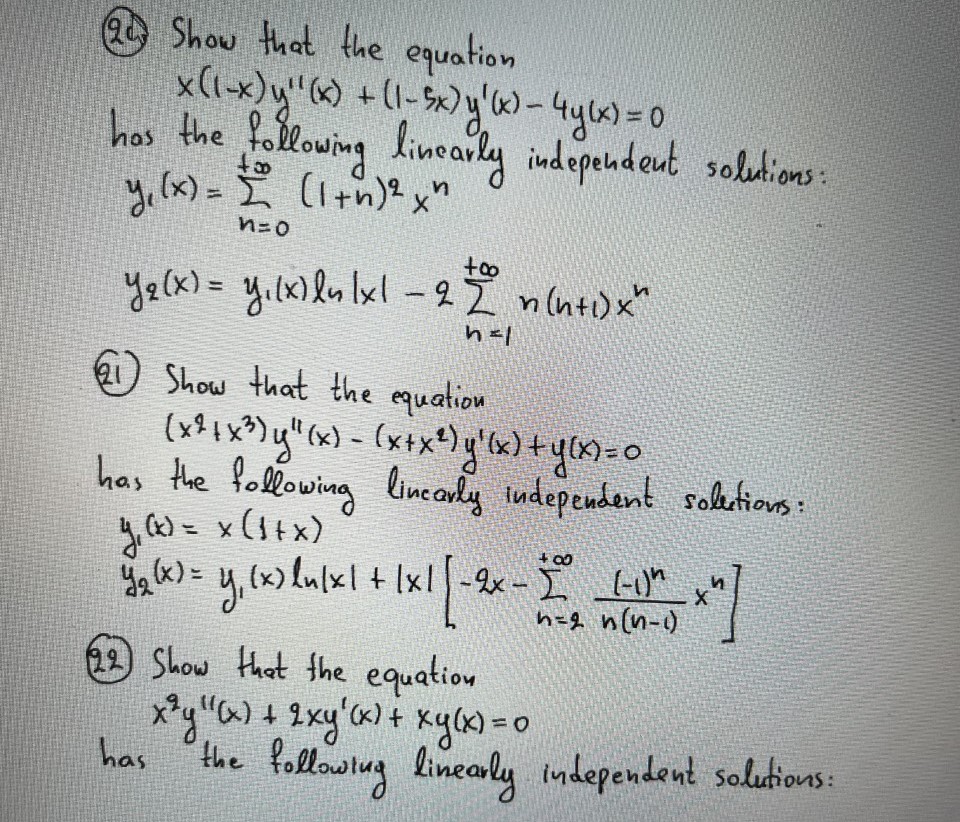 20 Show that the equation
x(1-x)y''(x) + (1-5x)y'(x) - 4y(x) = 0
has the following linearly independent solutions:
y₁(x) = Σ_{n=0}^{+∞} (1+n)² xⁿ
y₂(x) = y₁(x) ln|x| - 2 Σ_{n=1}^{+∞} n(n+1)xⁿ
21 Show that the equation
(x²+x³)y''(x) - (x+x²)y'(x) + y(x) = 0
has the following linearly independent solutions:
y₁(x) = x(1+x)
y₂(x) = y₁(x) ln|x| + |x| [-2x - Σ_{n=2}^{+∞} (-1)ⁿ/(n(n-1)) xⁿ]
22 Show that the equation
x²y''(x) + 2xy'(x) + xy(x) = 0
has the following linearly independent solutions: